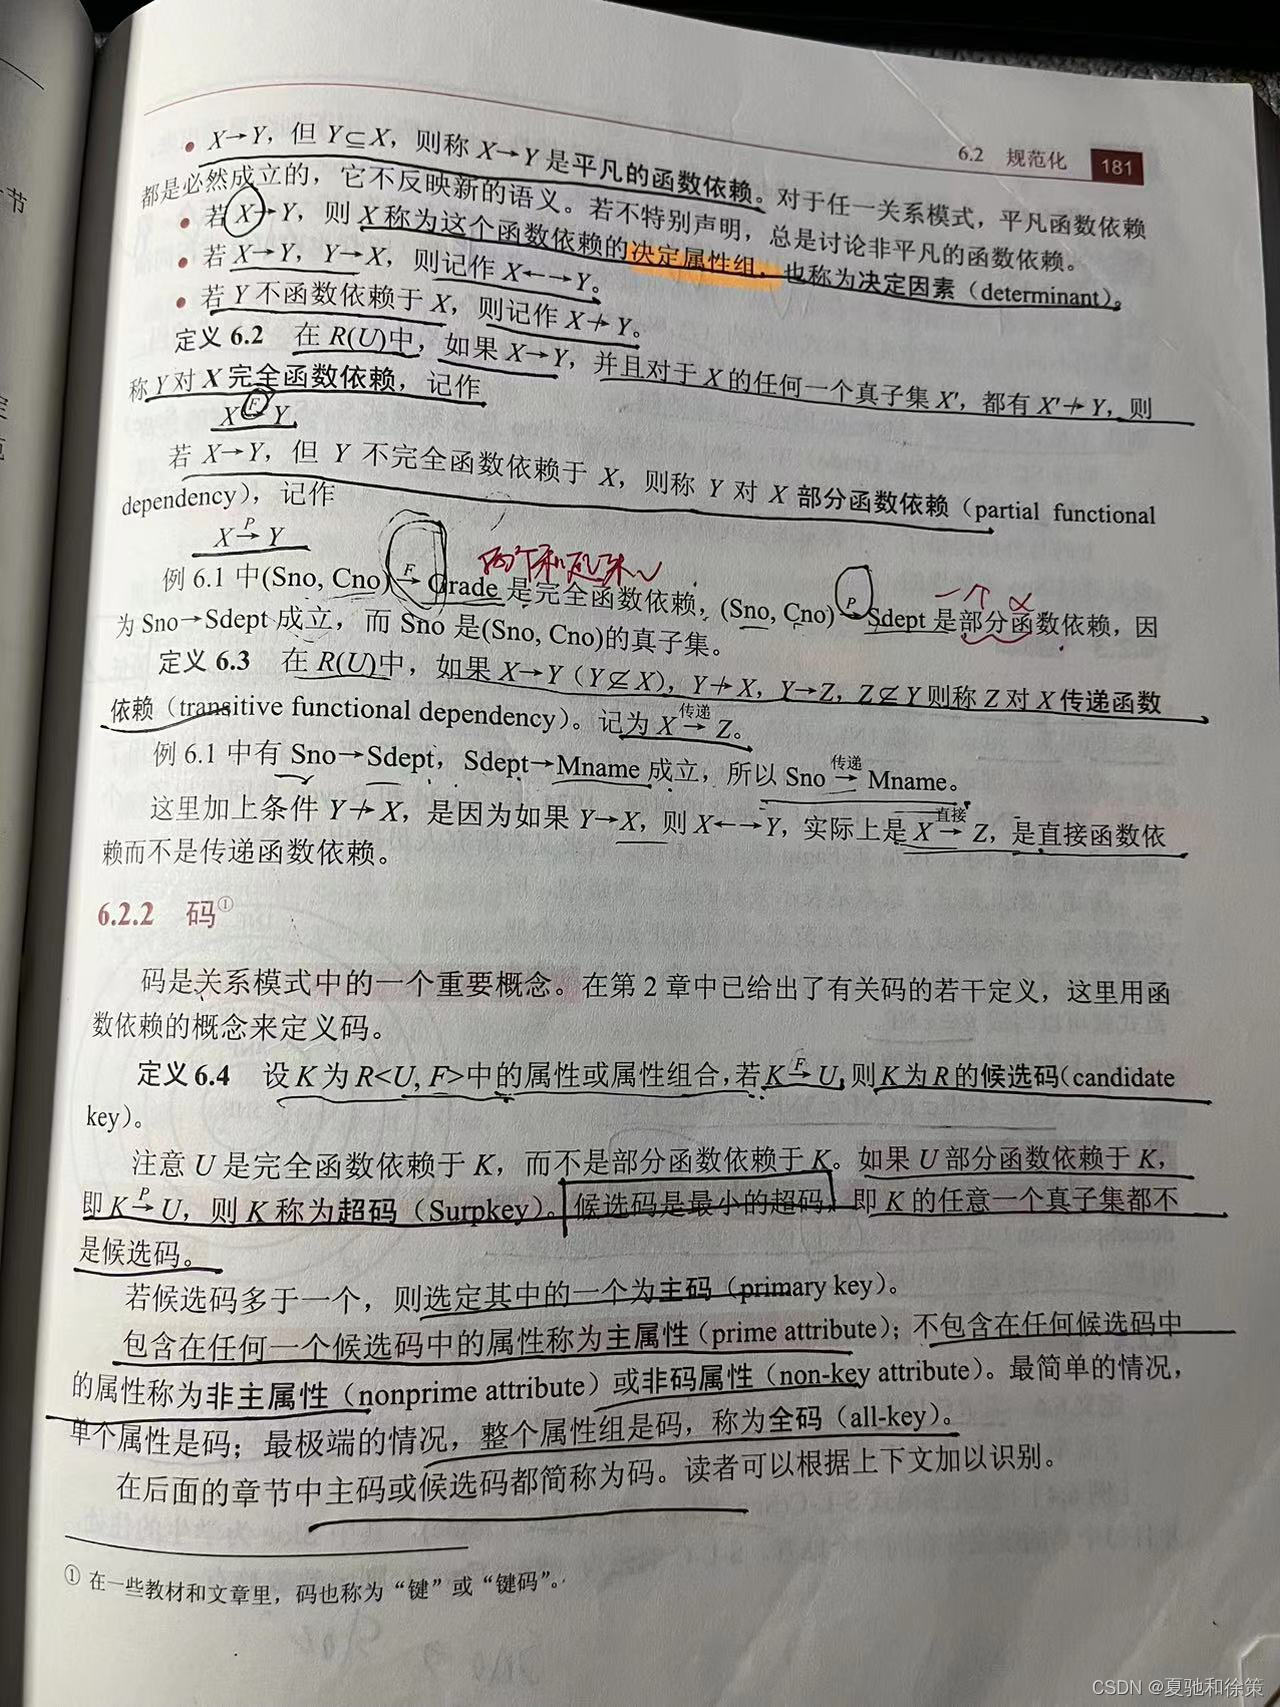 6.2 规范化 181
• X→Y，但 Y⊆X，则称 X→Y 是平凡的函数依赖。对于任一关系模式，平凡函数依赖
都是必然成立的，它不反映新的语义。若不特别声明，总是讨论非平凡的函数依赖。
• 若 X→Y，则 X 称为这个函数依赖的决定属性组，也称为决定因素（determinant）。
• 若 X→Y，Y→X，则记作 X←→Y。
• 若 Y 不函数依赖于 X，则记作 X↛Y。
定义 6.2 在 R(U)中，如果 X→Y，并且对于 X 的任何一个真子集 X′，都有 X′↛Y，则
称 Y 对 X 完全函数依赖，记作
X F→ Y
若 X→Y，但 Y 不完全函数依赖于 X，则称 Y 对 X 部分函数依赖（partial functional
dependency），记作
X P→ Y
例 6.1 中(Sno, Cno) F→ Grade 是完全函数依赖，(Sno, Cno) P→ Sdept 是部分函数依赖，因
为 Sno→Sdept 成立，而 Sno 是(Sno, Cno)的真子集。
定义 6.3 在 R(U)中，如果 X→Y（Y⊈X），Y↛X，Y→Z，Z⊈Y 则称 Z 对 X 传递函数
依赖（transitive functional dependency）。记为 X 传递→ Z。
例 6.1 中有 Sno→Sdept，Sdept→Mname 成立，所以 Sno 传递→ Mname。
这里加上条件 Y↛X，是因为如果 Y→X，则 X←→Y，实际上是 X 直接→ Z，是直接函数依
赖而不是传递函数依赖。
6.2.2 码①
码是关系模式中的一个重要概念。在第 2 章中已给出了有关码的若干定义，这里用函
数依赖的概念来定义码。
定义 6.4 设 K 为 R<U, F>中的属性或属性组合，若 K F→ U，则 K 为 R 的候选码（candidate
key）。
注意 U 是完全函数依赖于 K，而不是部分函数依赖于 K。如果 U 部分函数依赖于 K，
即 K P→ U，则 K 称为超码（Surpkey）。候选码是最小的超码，即 K 的任意一个真子集都不
是候选码。
若候选码多于一个，则选定其中的一个为主码（primary key）。
包含在任何一个候选码中的属性称为主属性（prime attribute）；不包含在任何候选码中
的属性称为非主属性（nonprime attribute）或非码属性（non-key attribute）。最简单的情况，
单个属性是码；最极端的情况，整个属性组是码，称为全码（all-key）。
在后面的章节中主码或候选码都简称为码。读者可以根据上下文加以识别。
① 在一些教材和文章里，码也称为“键”或“键码”。
CSDN @夏驰和徐策